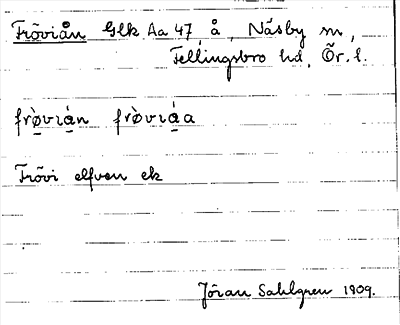 Fröviån Glk Aa 47 å, Näsby sn,
Fellingsbro hd. Ör. l.
frövian fröviaa
Frövi elfven ek
Jöran Sahlgren 1909.